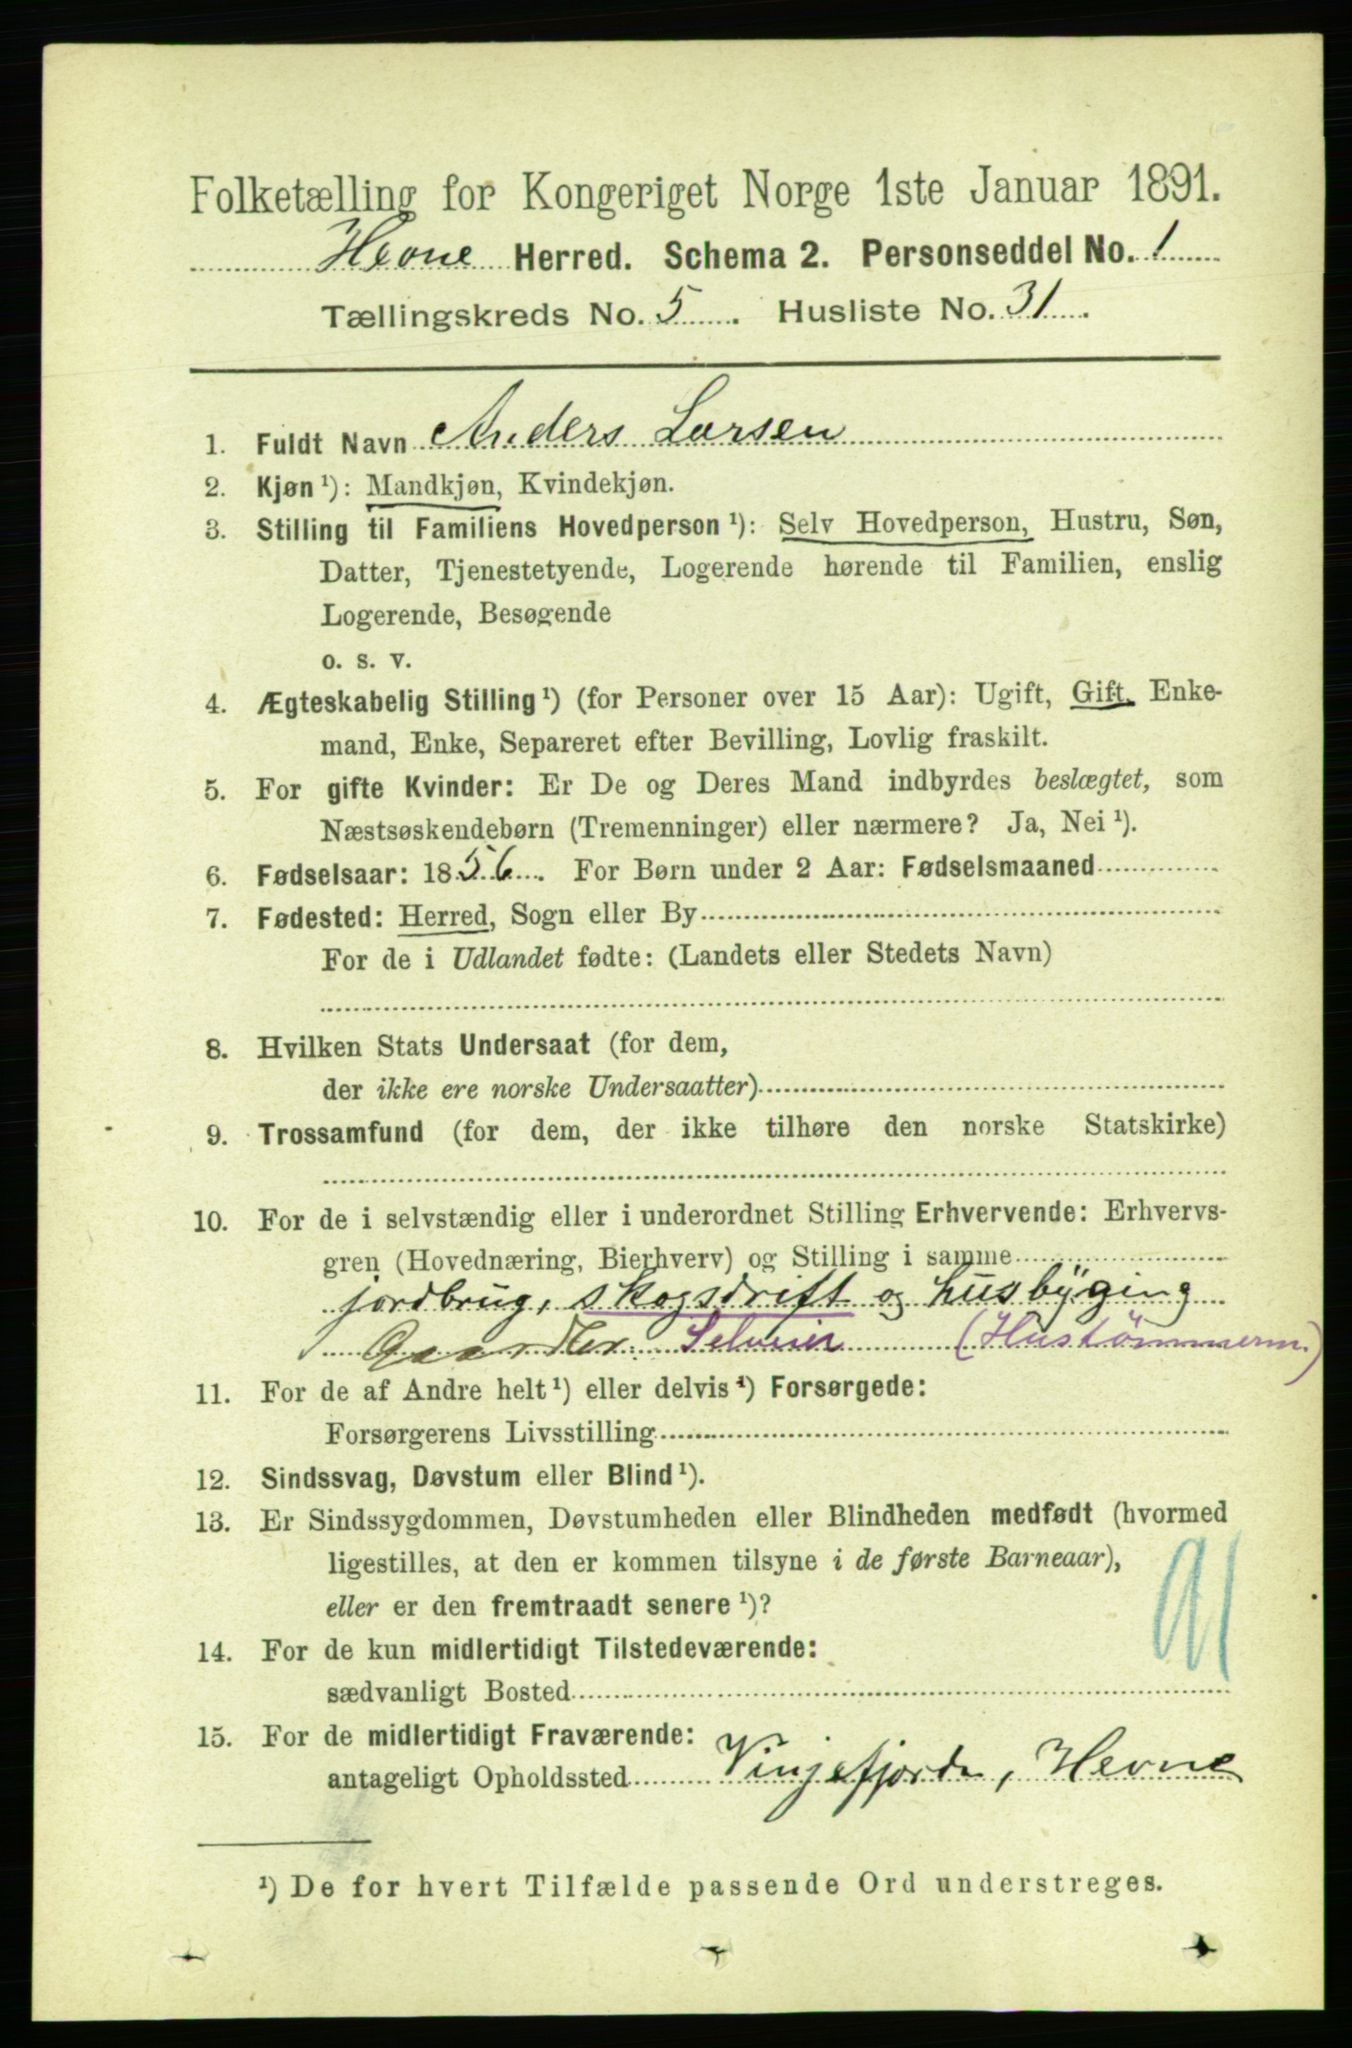 Folketælling for Kongeriget Norge 1ste Januar 1891.
Hevne Herred. Schema 2. Personseddel No. 1
Tællingskreds No. 5. Husliste No. 31.
1. Fuldt Navn Anders Larsen
2. Kjøn ¹): Mandkjøn, Kvindekjøn.
3. Stilling til Familiens Hovedperson ¹): Selv Hovedperson, Hustru, Søn,
Datter, Tjenestetyende, Logerende hørende til Familien, enslig
Logerende, Besøgende
o. s. v.
4. Ægteskabelig Stilling ¹) (for Personer over 15 Aar): Ugift, Gift, Enke-
mand, Enke, Separeret efter Bevilling, Lovlig fraskilt.
5. For gifte Kvinder: Er De og Deres Mand indbyrdes beslægtet, som
Næstsøskendebørn (Tremenninger) eller nærmere? Ja, Nei ¹).
6. Fødselsaar: 1856. For Børn under 2 Aar: Fødselsmaaned
7. Fødested: Herred, Sogn eller By
For de i Udlandet fødte: (Landets eller Stedets Navn)
8. Hvilken Stats Undersaat (for dem,
der ikke ere norske Undersaatter)
9. Trossamfund (for dem, der ikke tilhøre den norske Statskirke)
10. For de i selvstændig eller i underordnet Stilling Erhvervende: Erhvervs-
gren (Hovednæring, Bierhverv) og Stilling i samme
jordbrug, skogsdrift og husbyging
Gaardbr. Selveier (Hustømmerm.)
11. For de af Andre helt ¹) eller delvis ¹) Forsørgede:
Forsørgerens Livsstilling
12. Sindssvag, Døvstum eller Blind ¹).
13. Er Sindssygdommen, Døvstumheden eller Blindheden medfødt (hvormed
ligestilles, at den er kommen tilsyne i de første Barneaar),
eller er den fremtraadt senere ¹)?
14. For de kun midlertidigt Tilstedeværende:
sædvanligt Bosted
91
15. For de midlertidigt Fraværende:
antageligt Opholdssted Vinjefjorden, Hevne
¹) De for hvert Tilfælde passende Ord understreges.